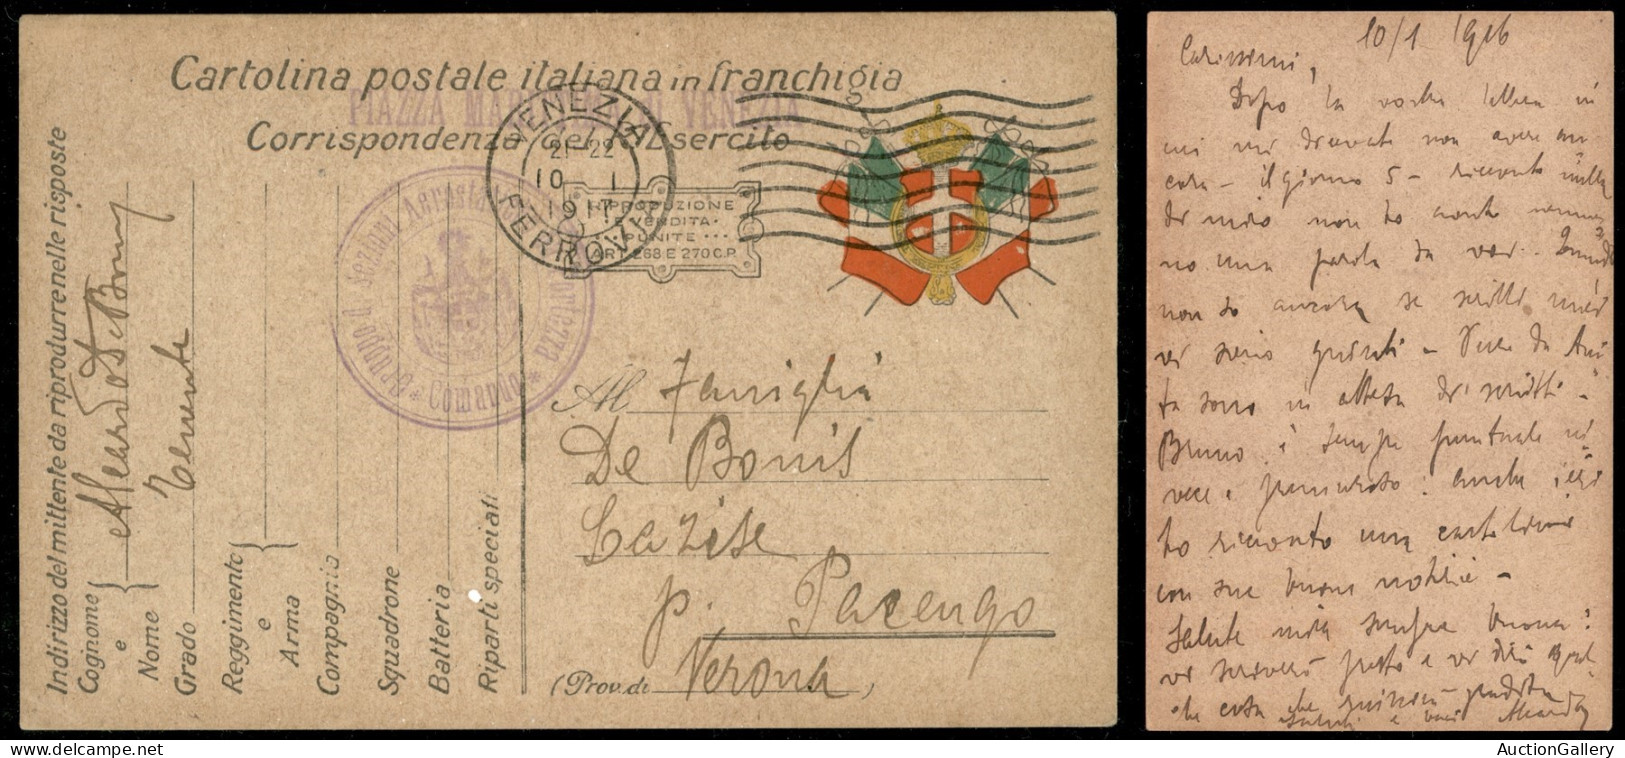 Cartolina postale italiana in franchigia
PIAZZA MARITTIMA DI VENEZIA
Corrispondenza del R. Esercito
VENEZIA
21-22
10 - 1
1917
FERROVIA
RIPRODUZIONE
E VENDITA
PUNITE
ART. 268 E 270 C.P.
Gruppo di Sezioni Aerostatiche da Fortezza
* Comando *
Indirizzo del mittente da riprodurre nelle risposte
Cognome
e
Nome
Aleardo De Bonis
Grado
Tenente
Reggimento
e
Arma
Compagnia
Squadrone
Batteria
Riparti speciali
Al Famiglia
De Bonis
Lazise
p. Pacengo
(Prov. di Verona)
10/1 1916
Carissimi,
Dopo la vostra lettera in
cui mi dicevate non avere an-
cora - il giorno 5 - ricevuto nulla
di mio non ho avuto nemme-
no una parola da voi. Quindi
non so ancora se scritti miei
vi sieno giunti -
ta sono in attesa di scritti -
Bruno è sempre puntuale in-
vece e premuroso: anche ieri
ho ricevuto una cartolina
con sue buone notizie -
Salute mia sempre buona:
vi scriverò presto e vi dirò qual-
che cosa che
saluti e baci Aleardo
AuctionGallery